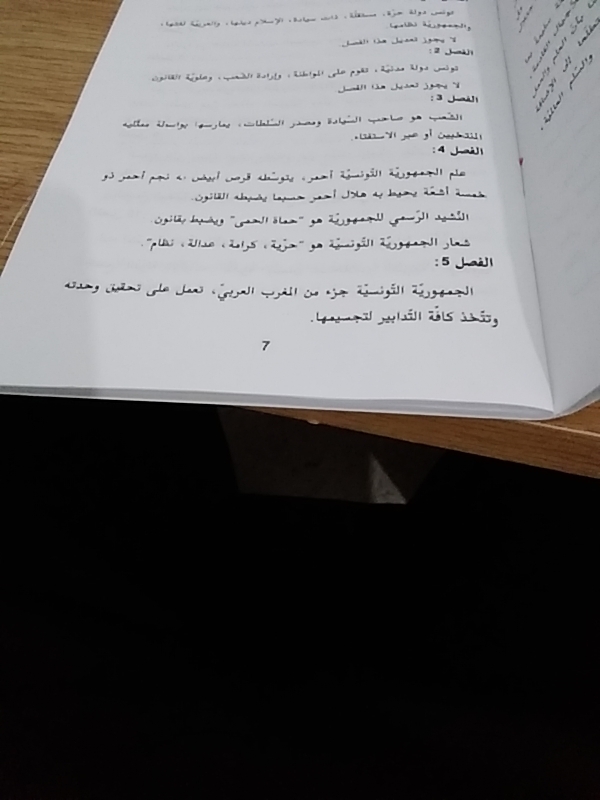 تونس دولة حرّة، مستقلّة، ذات سيادة، الإسلام دينها، والعربيّة لغتها،
والجمهوريّة نظامها.
لا يجوز تعديل هذا الفصل.
الفصل 2:
تونس دولة مدنيّة، تقوم على المواطنة، وإرادة الشّعب، وعلويّة القانون
لا يجوز تعديل هذا الفصل
الفصل 3:
الشّعب هو صاحب السّيادة ومصدر السّلطات، يمارسها بواسطة ممثّليه
المنتخبين أو عبر الاستفتاء.
الفصل 4:
علم الجمهوريّة التّونسيّة أحمر، يتوسّطه قرص أبيض به نجم أحمر ذو
خمسة أشعّة يحيط به هلال أحمر حسبما يضبطه القانون.
النّشيد الرّسمي للجمهوريّة هو "حماة الحمى" ويضبط بقانون.
شعار الجمهوريّة التّونسيّة هو "حرّية، كرامة، عدالة، نظام".
الفصل 5:
الجمهوريّة التّونسيّة جزء من المغرب العربيّ، تعمل على تحقيق وحدته
وتتّخذ كافّة التّدابير لتجسيمها.
7